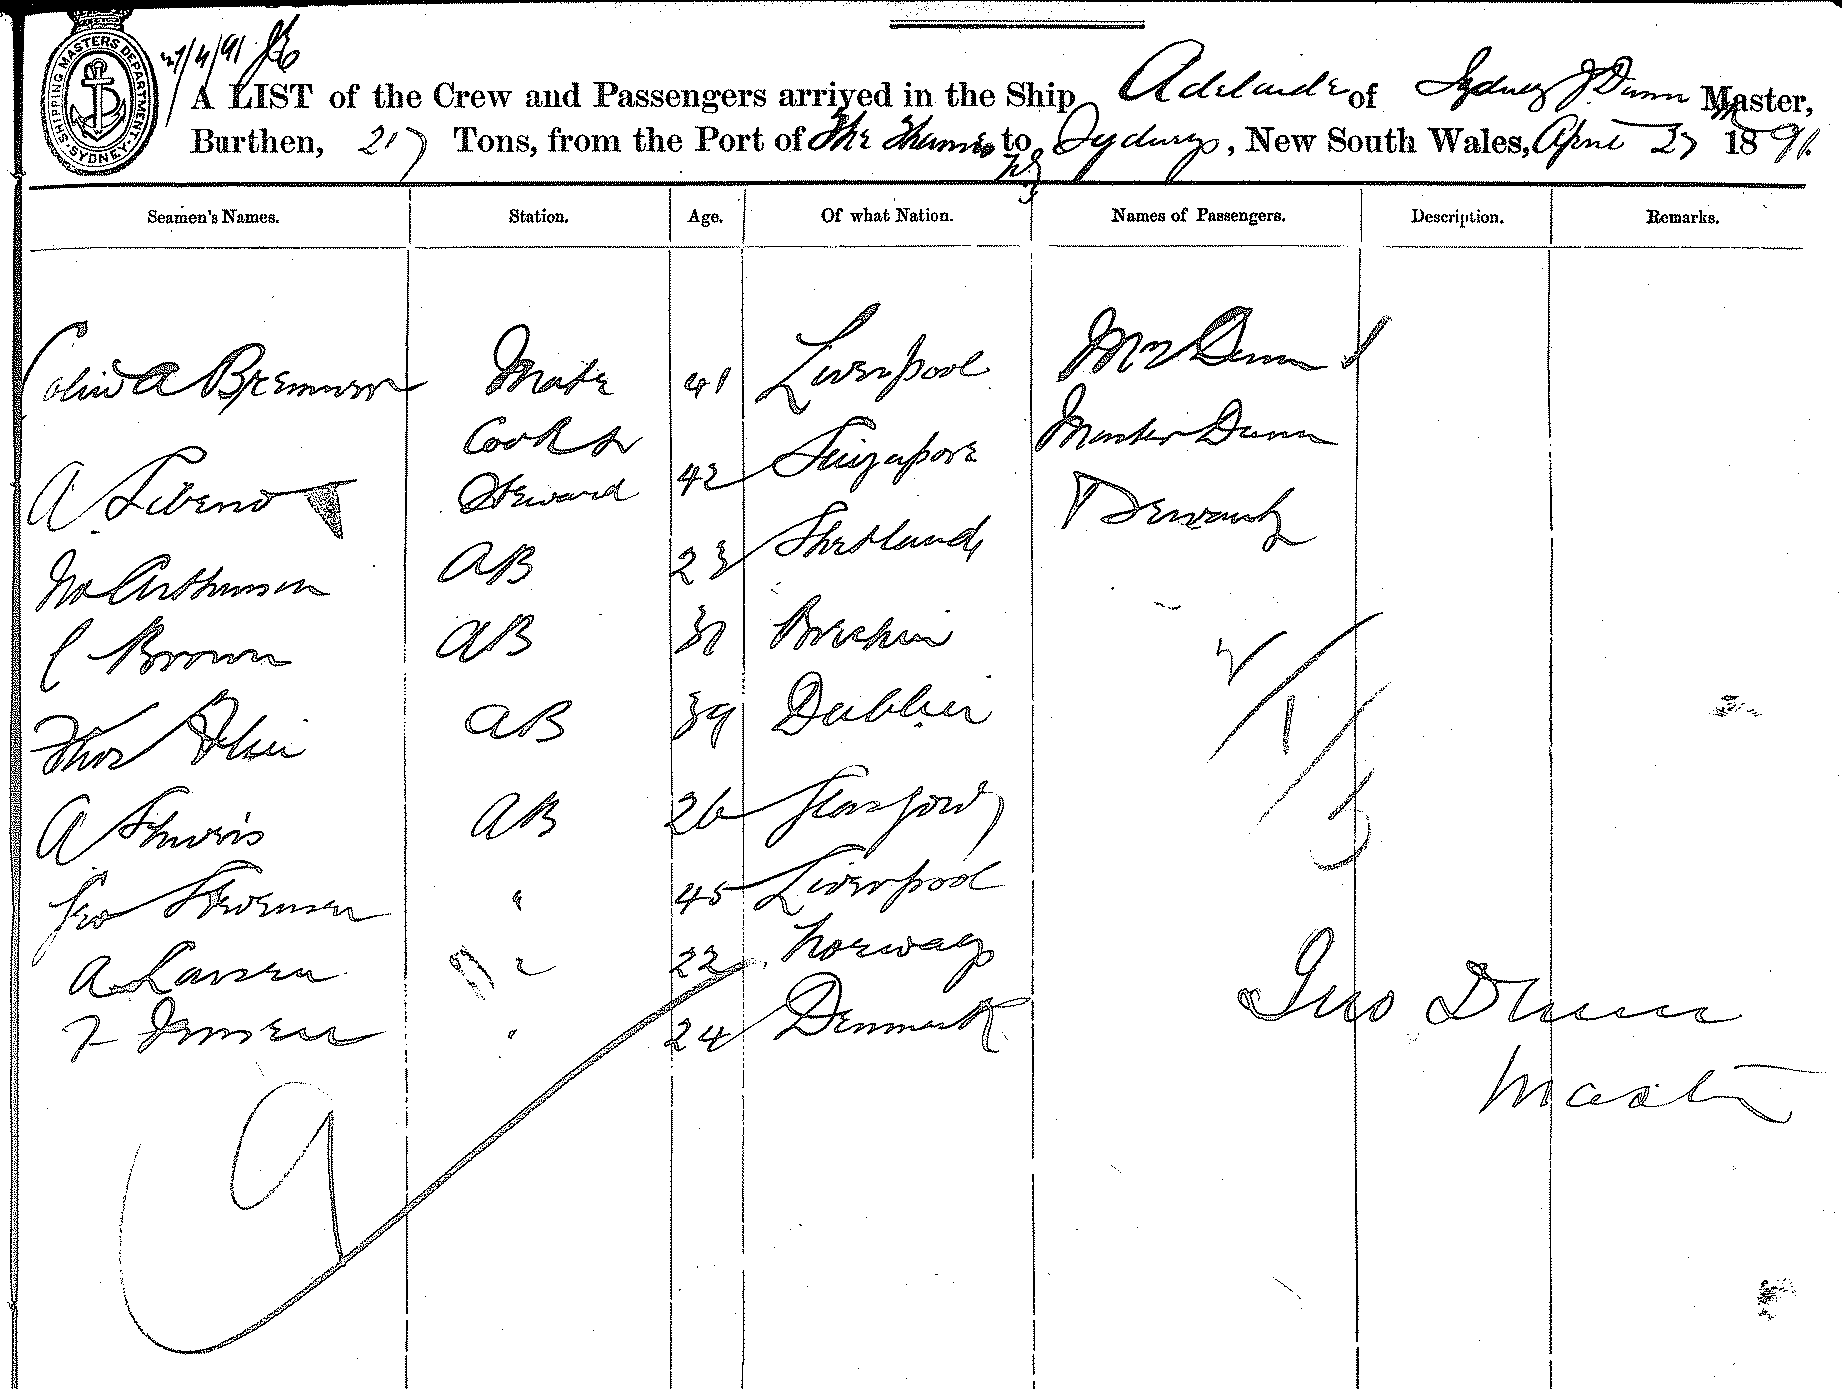 SHIPPING MASTERS DEPARTMENT SYDNEY
27/4/91
A LIST of the Crew and Passengers arrived in the Ship Adelaide of Sydney J. Dunn Master,
Burthen, 217 Tons, from the Port of The Thames to Sydney, New South Wales, April 27 1891.
Seamen's Names. Station. Age. Of what Nation. Names of Passengers. Description. Remarks.
Colin A Bremner Mate 41 Liverpool Mrs Dunn
Cook & Master Dunn
A 42 Singapore
Steward Servant
AB 23 Shetland
C Brown AB Brechin
Thos AB 39 Dublin
A AB 26 Glasgow
Geo Stevensen " 45 Liverpool
A Larsen " 22 Norway
Jensen " 24 Denmark
2/1/3
9
Jno Dunn
Master